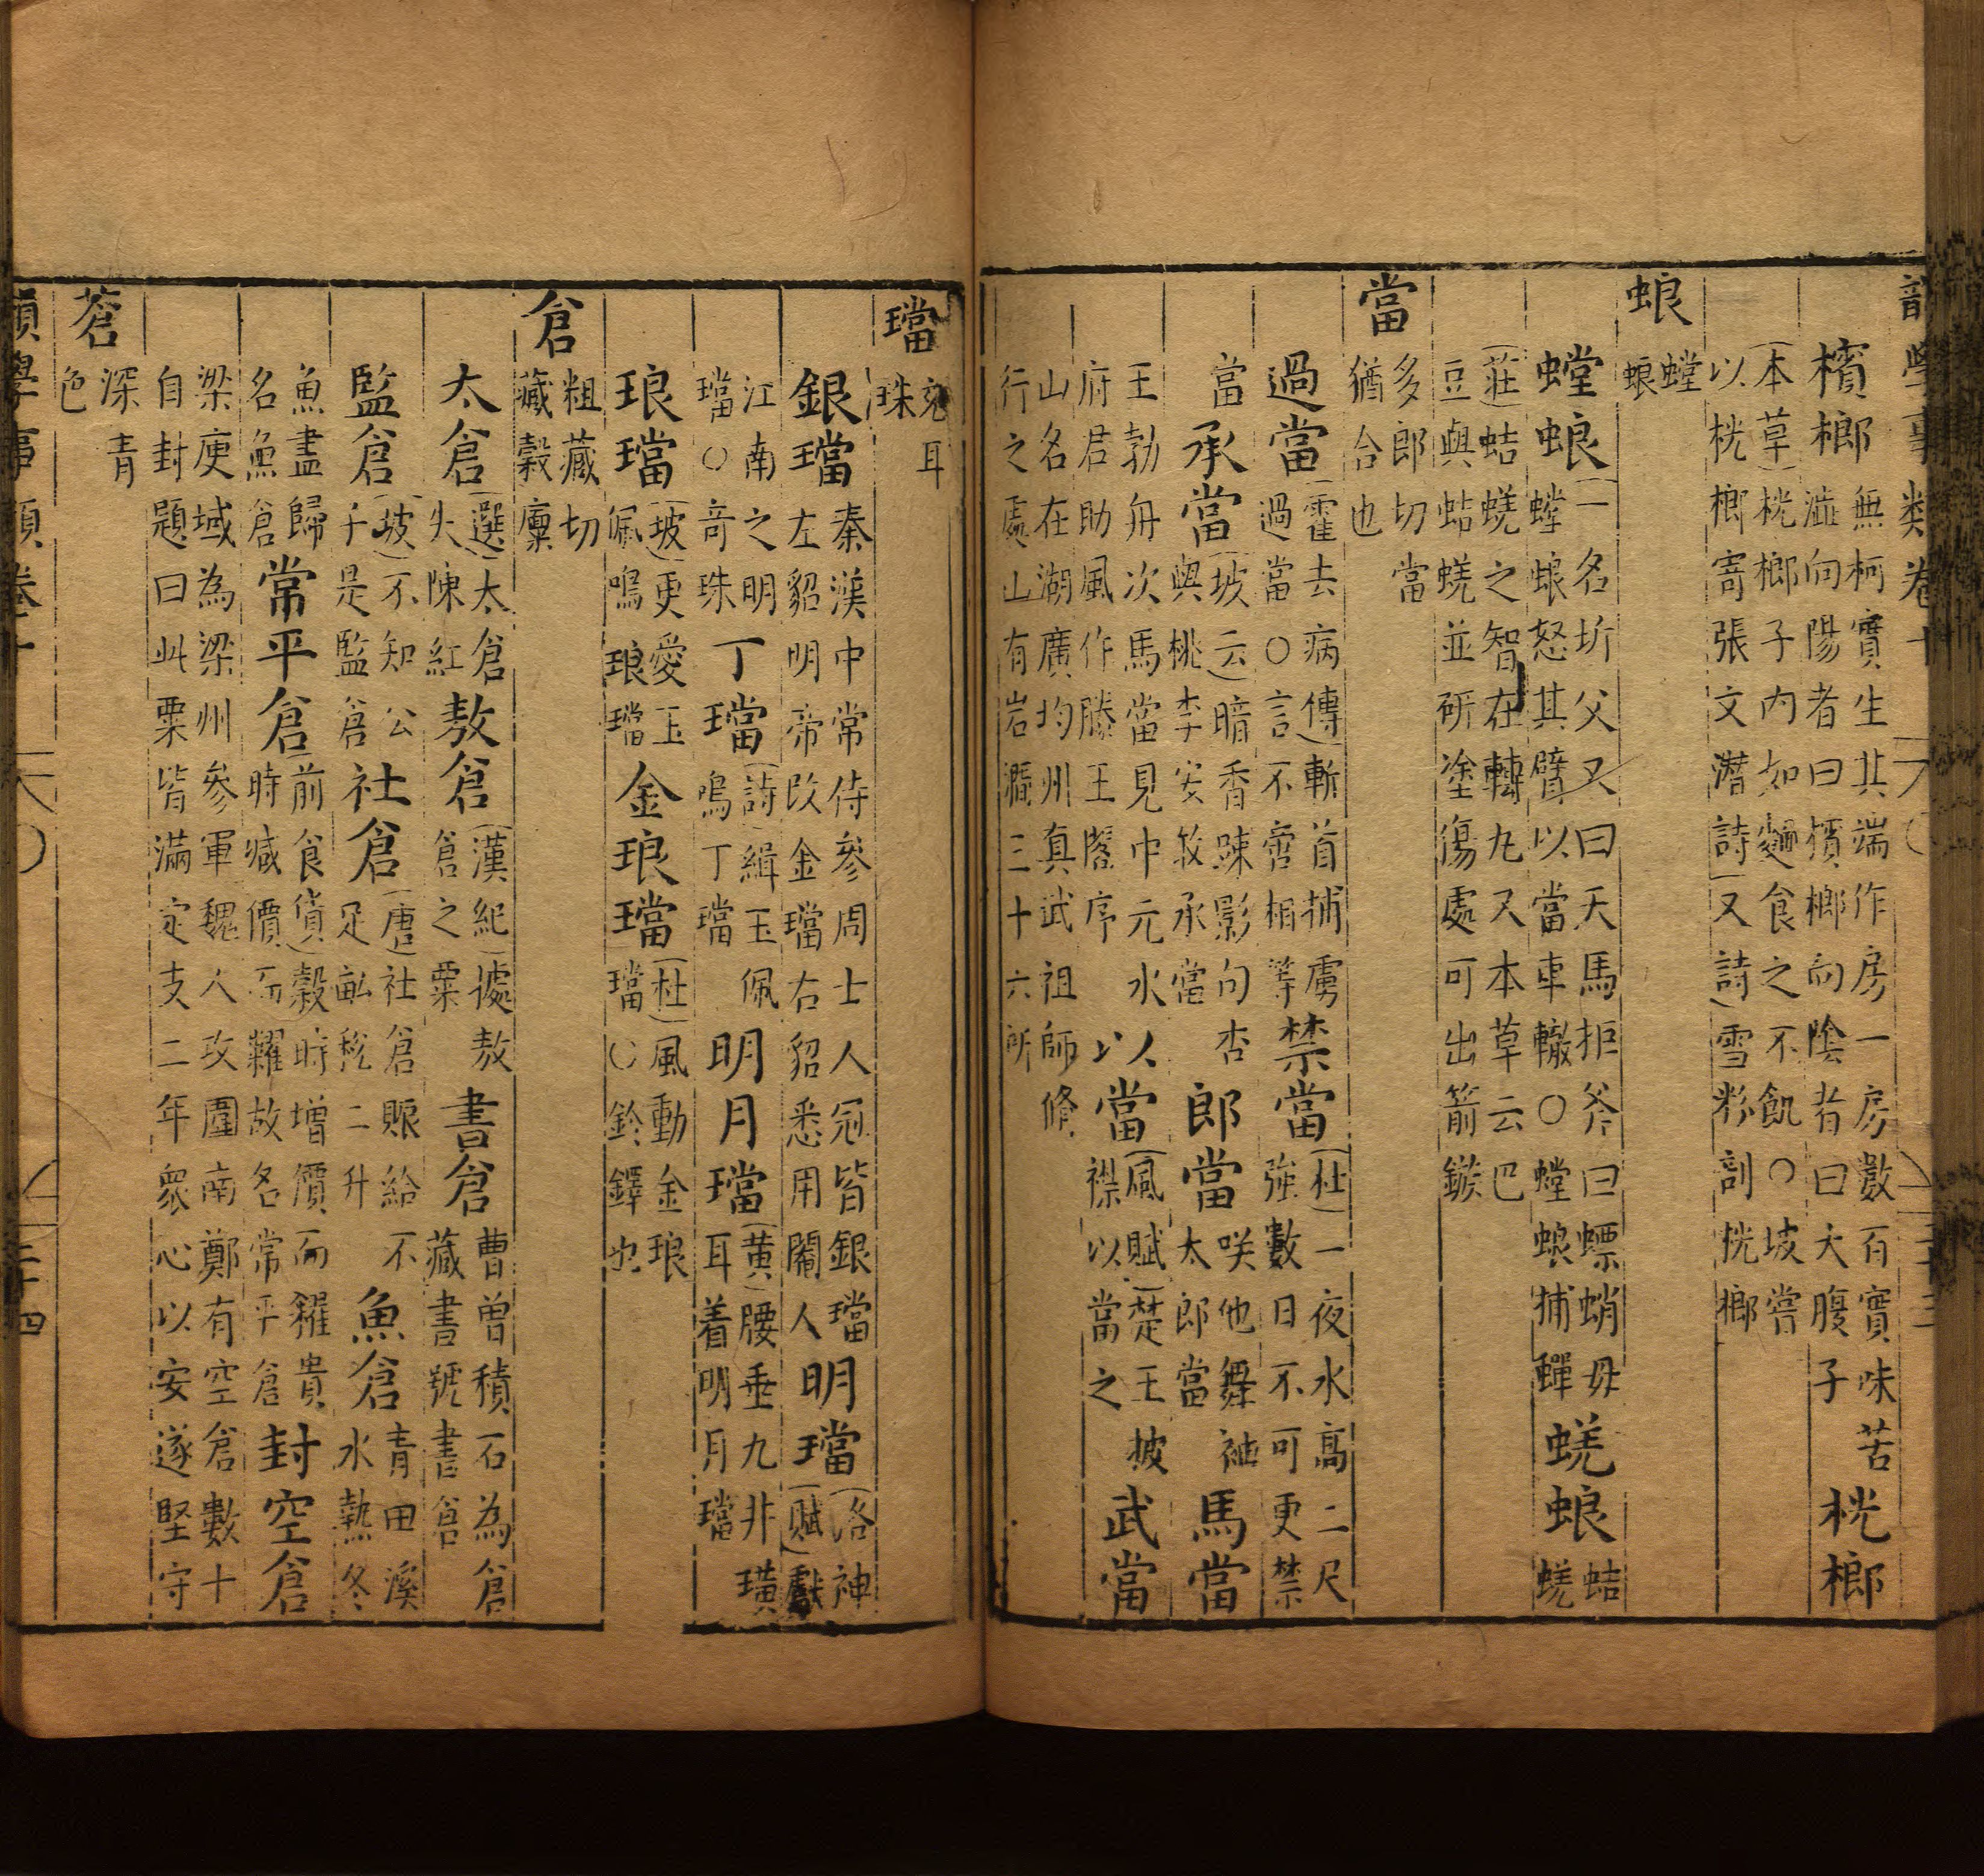 韻學事類卷十 二十三
檳榔無柯實生其端作房一房數百實味苦
澁向陽者曰檳榔向陰者曰大腹子桄榔
本草桄榔子内如麵食之不飢○坡嘗
以桄榔寄張文潛詩又詩雪粉剖桄榔
蜋螳
蜋
螳蜋一名圻父又曰天馬拒斧曰螵蛸母
螳蜋怒其臂以當車轍○螳蜋捕蟬蜣蜋蛣
蜣
莊蛣蜣之智在轉丸又本草云巴
豆與蛣蜣並研塗傷處可出箭鏃
當多郎切當
猶合也
過當霍去病傳斬首捕虜
過當○言不啻相等禁當杜一夜水高二尺
強數日不可更禁
當承當坡云暗香踈影向杏
與桃李安敢承當郎當咲他舞袖
太郎當馬當
王勃舟次馬當見中元水
府君助風作滕王閣序以當風賦楚王披
襟以當之武當
山名在湖廣均州真武祖師修
行之處山有岩澗三十六所
璫充耳
珠
銀璫秦漢中常侍參周士人冠皆銀璫
左貂明帝改金璫右貂悉用閹人明璫洛神
賦獻
江南之明
璫○竒珠丁璫詩緝玉佩
鳴丁璫明月璫黄腰垂九非璜
耳着明月璫
琅璫坡更愛玉
佩鳴琅璫金琅璫杜風動金琅
璫○鈴鐸也
倉粗藏切
藏穀廩
太倉選太倉
失陳紅敖倉漢紀據敖
倉之粟書倉曹曽積石為倉
藏書號書倉
監倉坡不知公
子是監倉社倉唐社倉賑給不
足畝稅二升魚倉青田溪
水熱冬
魚盡歸
名魚倉常平倉前食貨穀時增價而糴貴
時减價而糶故名常平倉封空倉
梁庾域為梁州參軍魏人攻圍南鄭有空倉數十
自封題曰此粟皆滿定支二年衆心以安遂堅守
蒼深青
色
韻學事類卷十 二十四